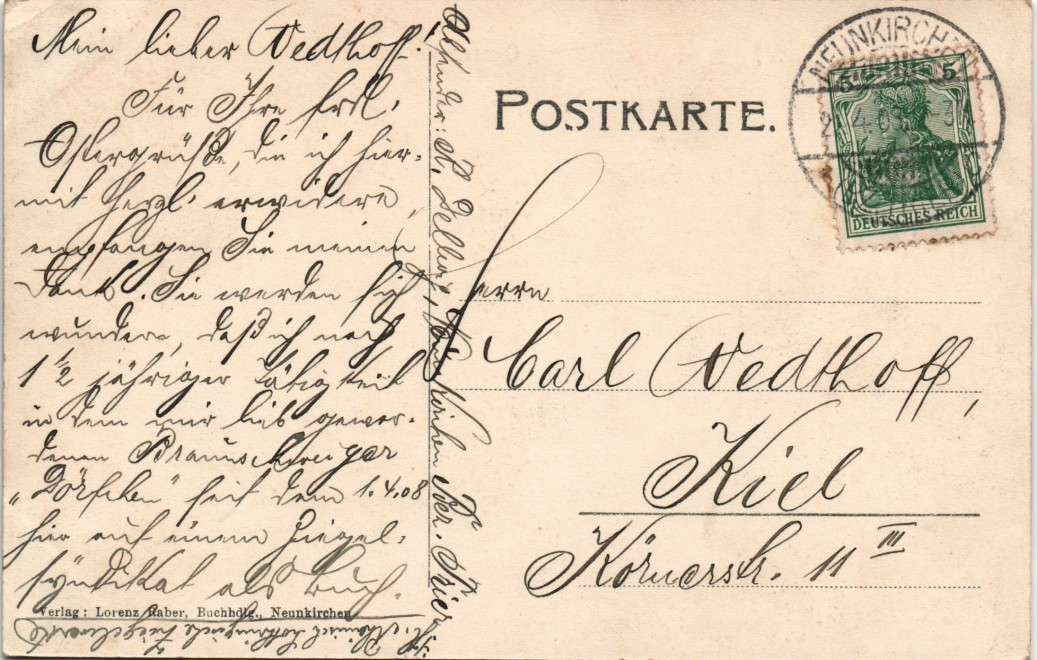 Mein lieber Vedthoff!
Für Ihre frdl.
Ostergrüße, die ich hier-
mit herzl. erwidere,
empfangen Sie meinen
Dank. Sie werden sich
wundern, daß ich nach
1 1/2 jähriger Tätigkeit
in dem mir lieb gewor-
denen Braunschweiger
„Dörfchen“ seit dem 1.4.08
hier auf einem Ziegel-
syndikat als Buch.
Absender: K. Neunkirchen Bez. Trier
Verlag: Lorenz Raber, Buchhdlg., Neunkirchen
Lothringische Ziegelwerke
POSTKARTE.
NEUNKIRCH
5 5
DEUTSCHES REICH
Herrn
Carl Vedthoff,
Kiel
Körnerstr. 11 III